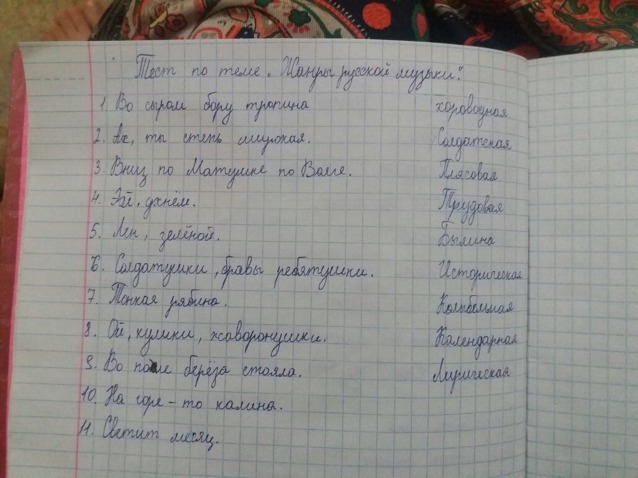 Тест по теме „Жанры русской музыки".
1. Во сыром бору тропина хороводная
2. Ах, ты степь широкая. Солдатская
3. Вниз по Матушке по Волге. Плясовая
4. Эй, ухнем. Трудовая
5. Лен, зелёной. Былина
6. Солдатушки, бравы ребятушки. Историческая
7. Тонкая рябина. Колыбельная
8. Ой, кулики, жаворонушки. Календарная
9. Во поле берёза стояла. Лирическая
10. На горе-то калина.
11. Светит месяц.